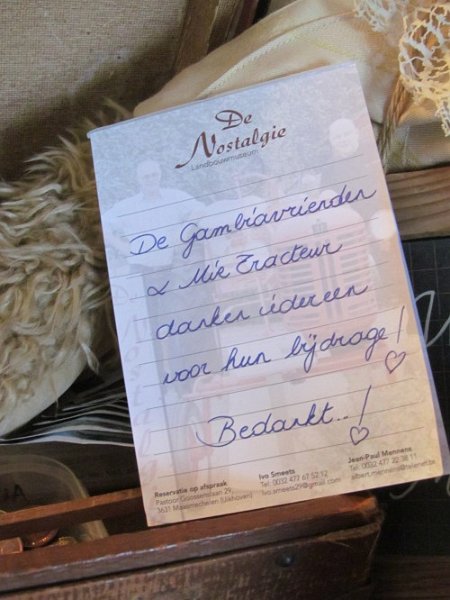 De
Nostalgie
Landbouwmuseum
De Gambiavrienden
& Mie Tracteur
danken iedereen
voor hun bijdrage!
Bedankt..!
Reservatie op afspraak
Pastoor Goossenslaan 29,
3631 Maasmechelen (Uikhoven)
Ivo Smeets
Tel: 0032 477 67 52 12
Ivo.smeets29@gmail.com
Jean-Paul Mennens
Tel: 0032 477 22 38 11
albert.mennens@telenet.be